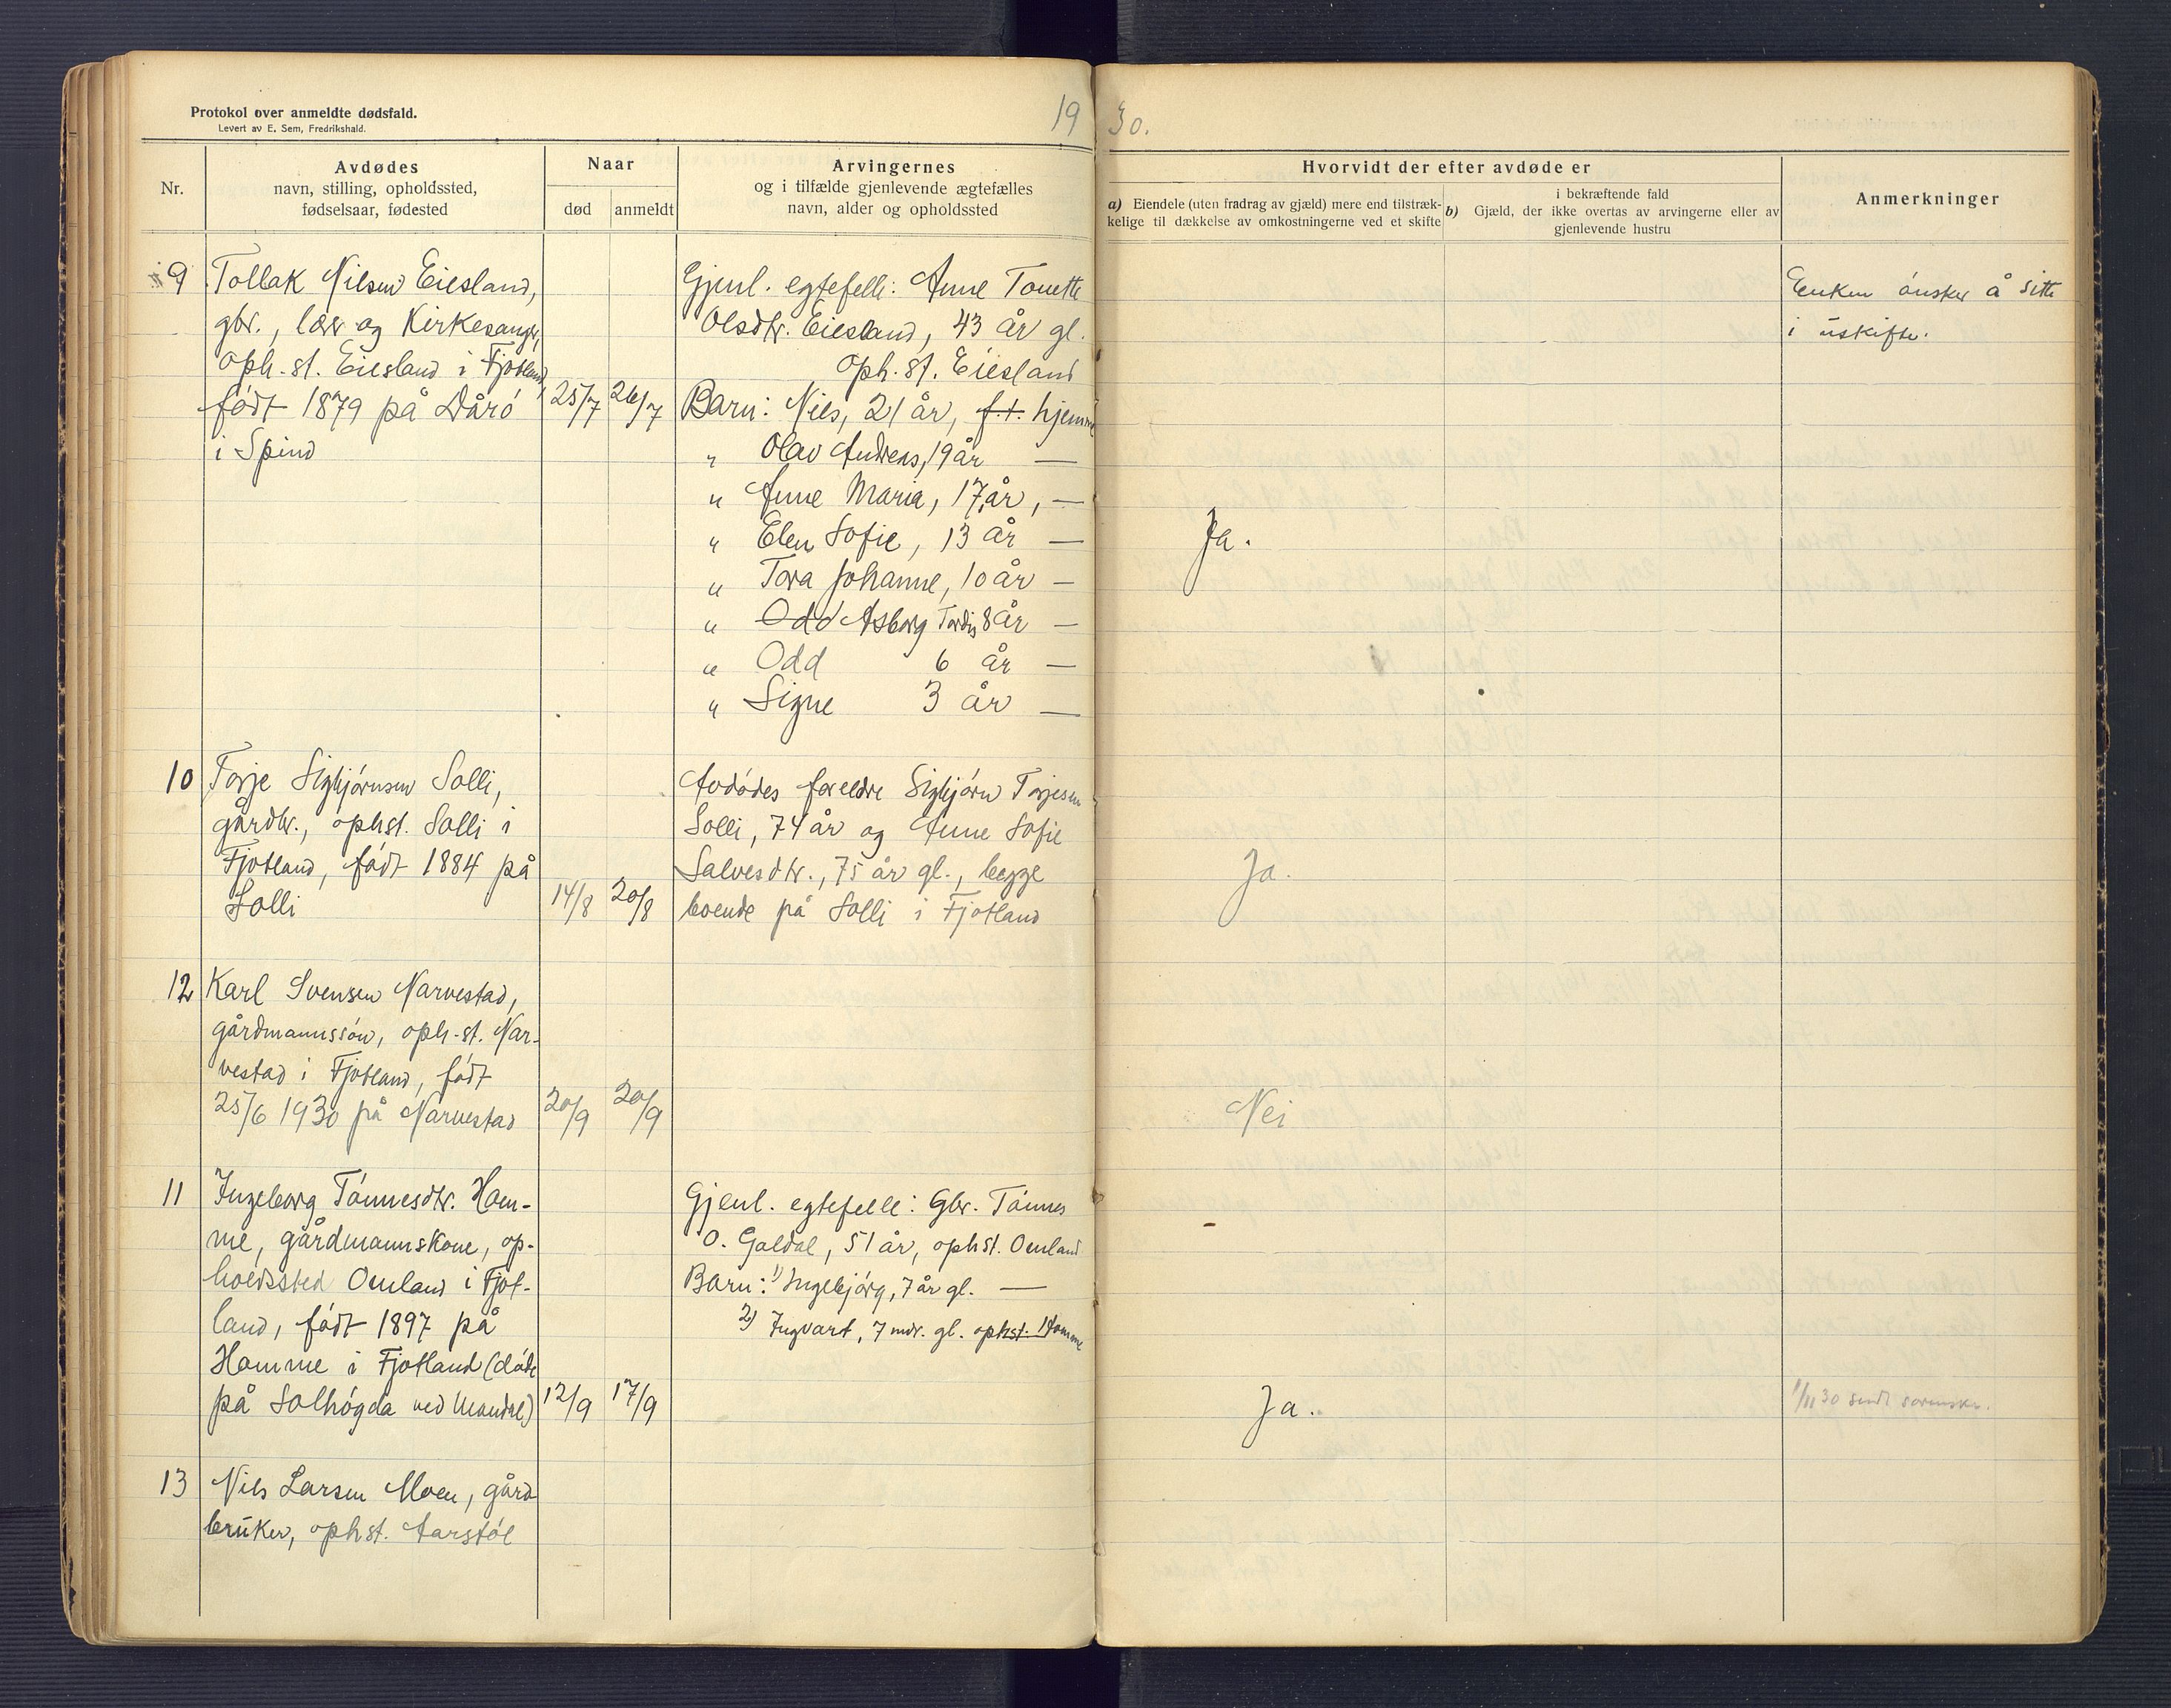 Protokol over anmeldte dødsfald.
Levert av E. Sem, Fredrikshald.
19 30.
Nr.
Avdødes
navn, stilling, opholdssted,
fødselsaar, fødested
Naar
død
anmeldt
Arvingernes
og i tilfælde gjenlevende ægtefælles
navn, alder og opholdssted
Hvorvidt der efter avdøde er
a) Eiendele (uten fradrag av gjæld) mere end tilstræk-
kelige til dækkelse av omkostningerne ved et skifte
i bekræftende fald
b) Gjæld, der ikke overtas av arvingerne eller av
gjenlevende hustru
Anmerkninger
9
Tollak Nilsen Eiesland,
gbr., lærer og Kirkesanger,
oph.st. Eiesland i Fjotland,
født 1879 på Dårö
i Spind
25/7
26/7
Gjenl. egtefelle: Anne Tonette
Olsdtr. Eiesland, 43 år gl.
oph.st. Eiesland
Barn: Nils, 21 år, f.t. hjemme
" Olav Andreas, 19 år —
" Anne Maria, 17 år, —
" Elen Sofie, 13 år —
" Tora Johanne, 10 år —
" Odd Asborg Tordis 8 år —
" Odd 6 år —
" Signe 3 år —
Ja.
Enken ønsker å sitte
i uskifte.
10
Torje Sigbjørnsen Solli,
gårdbr., ophst. Solli i
Fjotland, født 1884 på
Solli
14/8
20/8
Avdødes foreldre Sigbjørn Torjesen
Solli, 74 år og Anne Sofie
Salvesdtr., 75 år gl., begge
boende på Solli i Fjotland
Ja.
12
Karl Svensen Narvestad,
gårdmannssøn, oph.st. Nar-
vestad i Fjotland, født
25/6 1930 på Narvestad
20/9
20/9
Nei
11
Ingeborg Tønnesdtr. Hom-
me, gårdmannskone, op-
holdssted Omland i Fjot-
land, født 1897 på
Homme i Fjotland (døde
på Solhøgda ved Mandal)
12/9
17/9
Gjenl. egtefelle: Gbr. Tønnes
O. Galdal, 51 år, ophst. Omland
Barn: 1) Ingebjørg, 7 år gl. —
2) Ingvart, 7 mdr. gl. ophst. Homme
Ja.
1/11 30 sendt sorenskr.
13
Nils Larsen Moen, gård-
bruker, ophst. Aarstøl